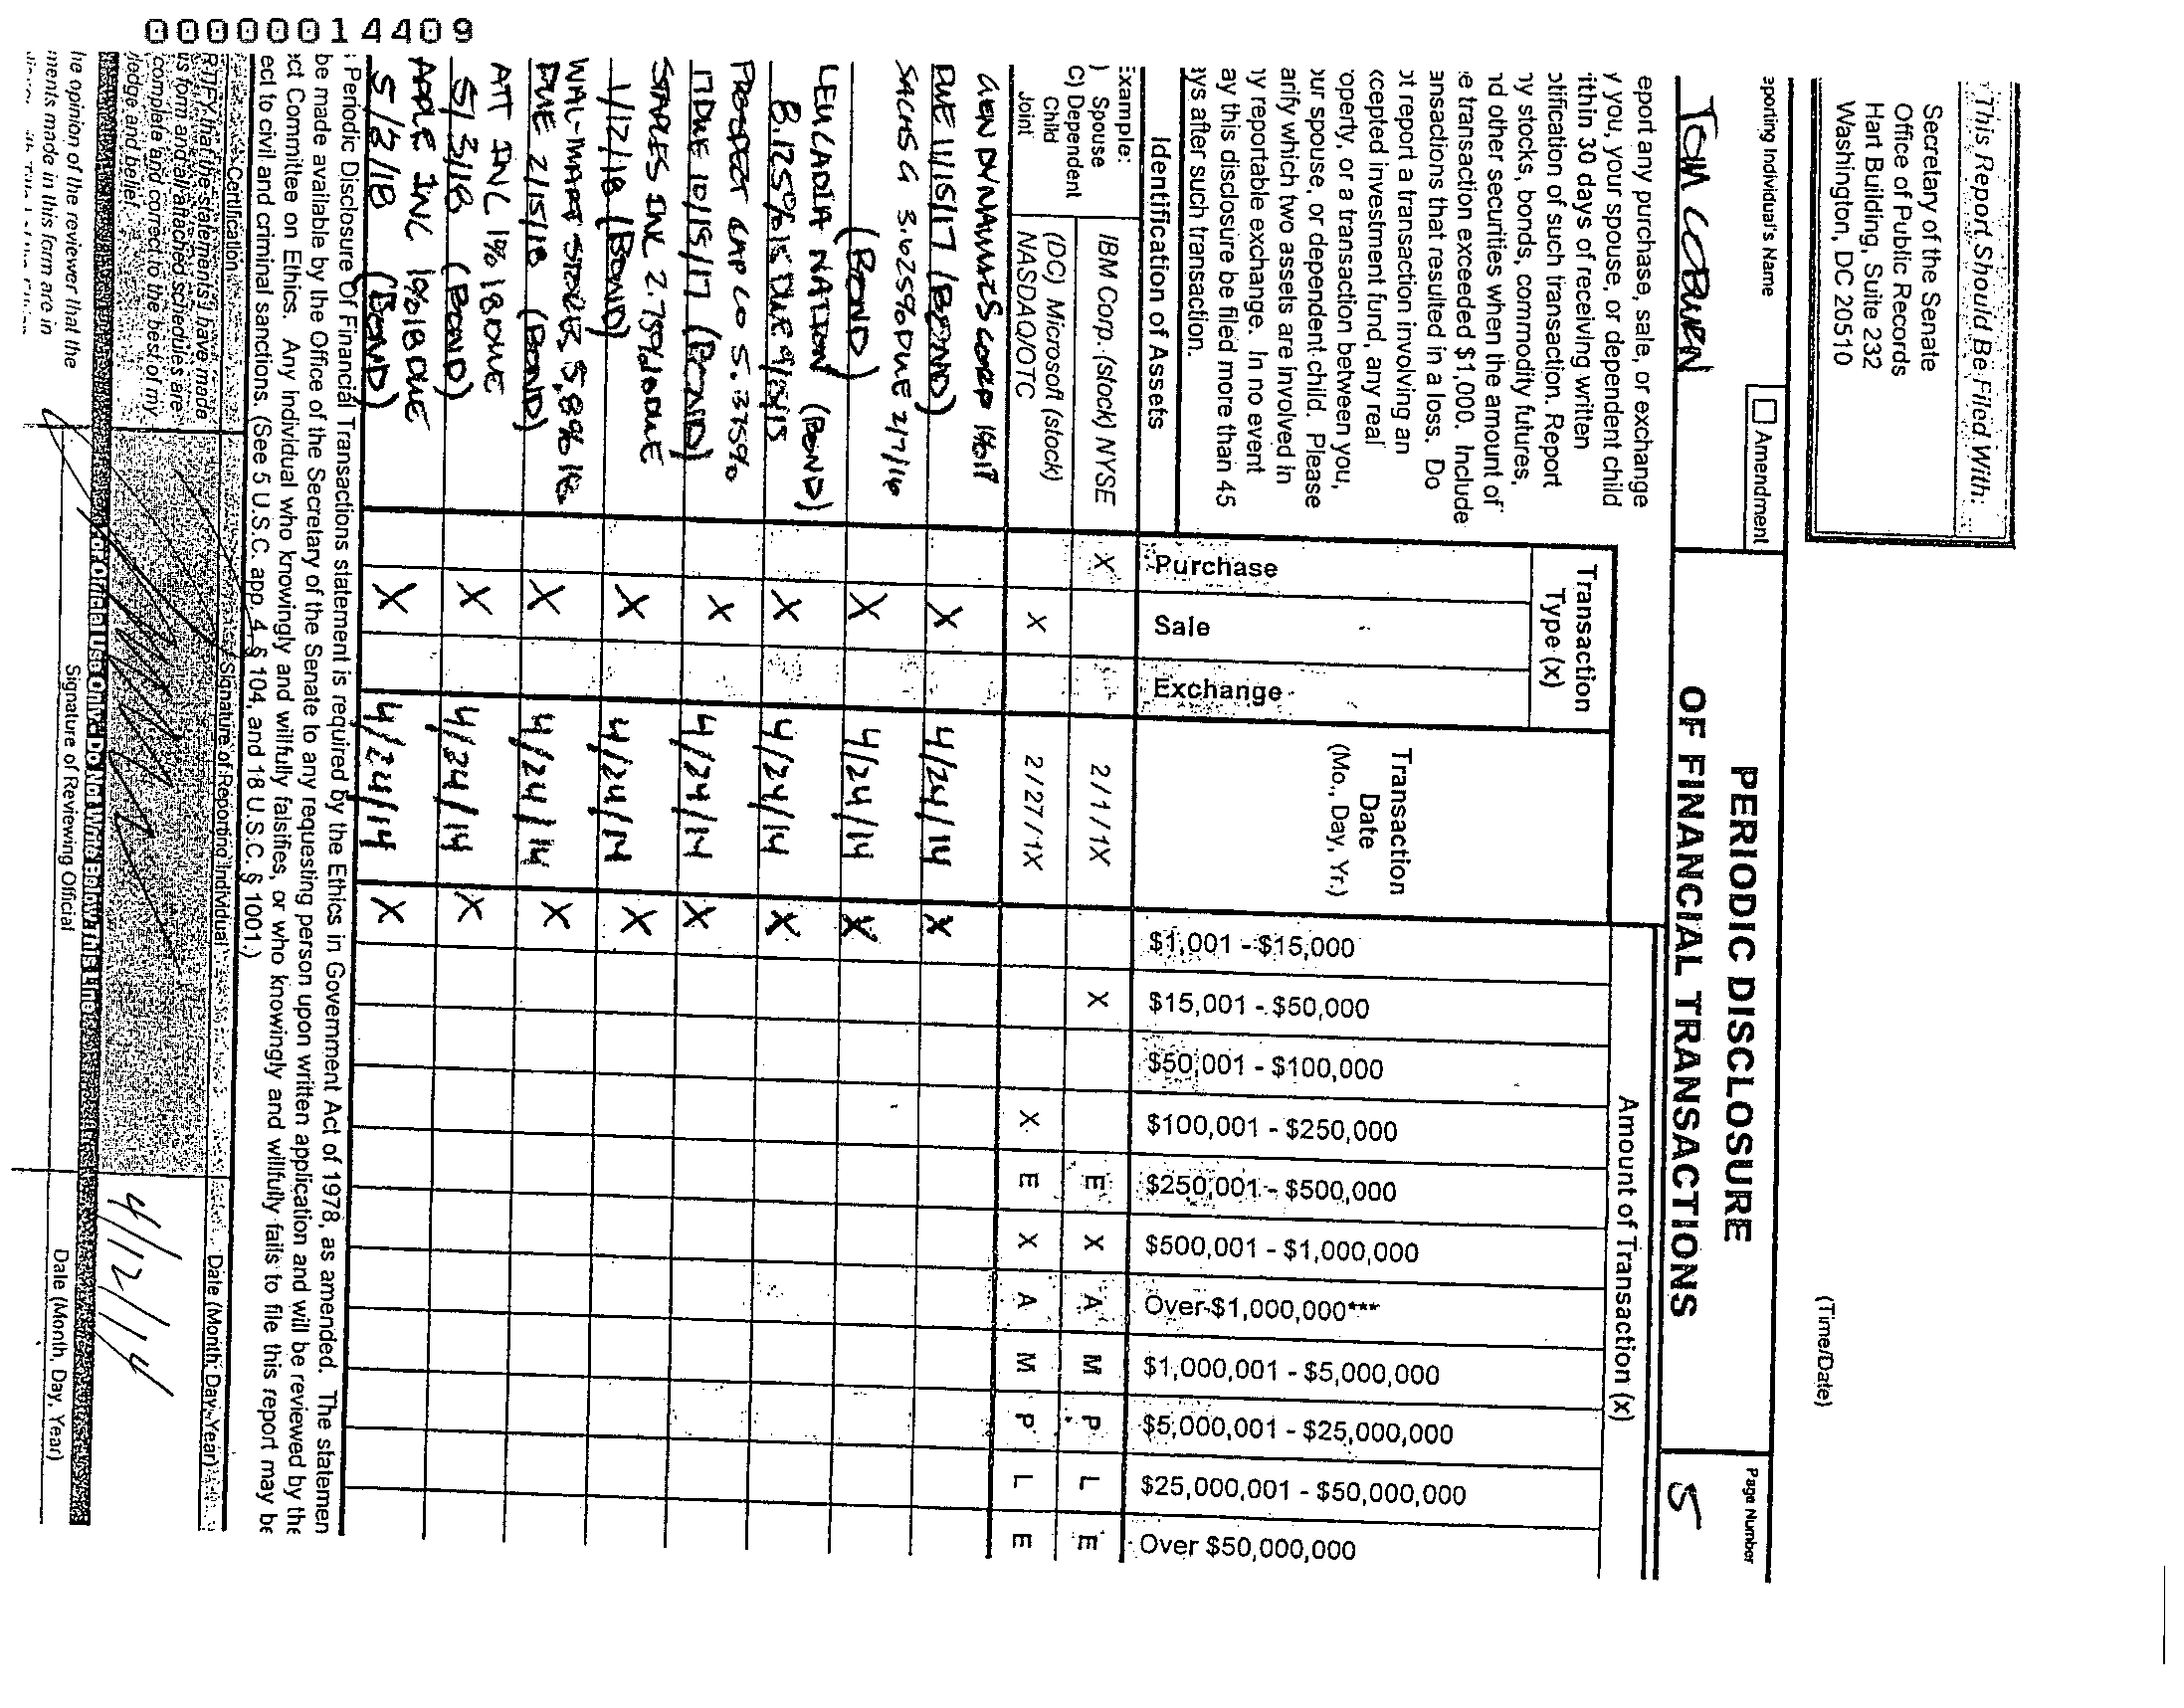 (Time/Date)
This Report Should Be Filed With:
Secretary of the Senate
Office of Public Records
Hart Building, Suite 232
Washington, DC 20510
eporting Individual's Name
TOM COBURN
Amendment
PERIODIC DISCLOSURE
OF FINANCIAL TRANSACTIONS
Page Number
5
eport any purchase, sale, or exchange
y you, your spouse, or dependent child
ithin 30 days of receiving written
otification of such transaction. Report
ny stocks, bonds, commodity futures,
nd other securities when the amount of
e transaction exceeded $1,000. Include
ansactions that resulted in a loss. Do
ot report a transaction involving an
xcepted investment fund, any real
operty, or a transaction between you,
our spouse, or dependent child. Please
arify which two assets are involved in
ny reportable exchange. In no event
ay this disclosure be filed more than 45
ays after such transaction.
Identification of Assets
Transaction
Type (x)
Purchase
Sale
Exchange
Transaction
Date
(Mo., Day, Yr.)
Amount of Transaction (x)
$1,001 - $15,000
$15,001 - $50,000
$50,001 - $100,000
$100,001 - $250,000
$250,001 - $500,000
$500,001 - $1,000,000
Over $1,000,000***
$1,000,001 - $5,000,000
$5,000,001 - $25,000,000
$25,000,001 - $50,000,000
Over $50,000,000
Example:
) Spouse
C) Dependent
Child
Joint
IBM Corp. (stock) NYSE X 2/1/1X X E X A M P L E
(DC) Microsoft (stock)
NASDAQ/OTC X 2/27/1X X E X A M P L E
GEN DYNAMICS CORP 1%17
DUE 11/15/17 (BOND) X 4/24/14 X
SACHS G 3.625% DUE 2/7/16
(BOND) X 4/24/14 X
LEUCADIA NATION (BOND)
8.125%15 DUE 9/15/15 X 4/24/14 X
PROSPECT CAP CO 5.375%
17 DUE 10/15/17 (BOND) X 4/24/14 X
STAPLES INC 2.75% DUE
1/12/18 (BOND) X 4/24/14 X
WAL-MART STORES 5.8% 18
DUE 2/15/18 (BOND) X 4/24/14 X
ATT INC 1% 18 DUE
5/3/18 (BOND) X 4/24/14 X
APPLE INC 1% 18 DUE
5/3/18 (BOND) X 4/24/14 X
Periodic Disclosure Of Financial Transactions statement is required by the Ethics in Government Act of 1978, as amended. The statemen
be made available by the Office of the Secretary of the Senate to any requesting person upon written application and will be reviewed by the
ct Committee on Ethics. Any individual who knowingly and willfully falsifies, or who knowingly and willfully fails to file this report may be
ect to civil and criminal sanctions. (See 5 U.S.C. app. 4, § 104, and 18 U.S.C. § 1001.)
Certification
Signature of Reporting Individual
Date (Month, Day, Year)
RTIFY that the statements I have made
is form and all attached schedules are
complete and correct to the best of my
ledge and belief.
4/12/14
For Official Use Only - Do Not Write Below This Line
he opinion of the reviewer that the
ments made in this form are in
Signature of Reviewing Official
Date (Month, Day, Year)
00000014409